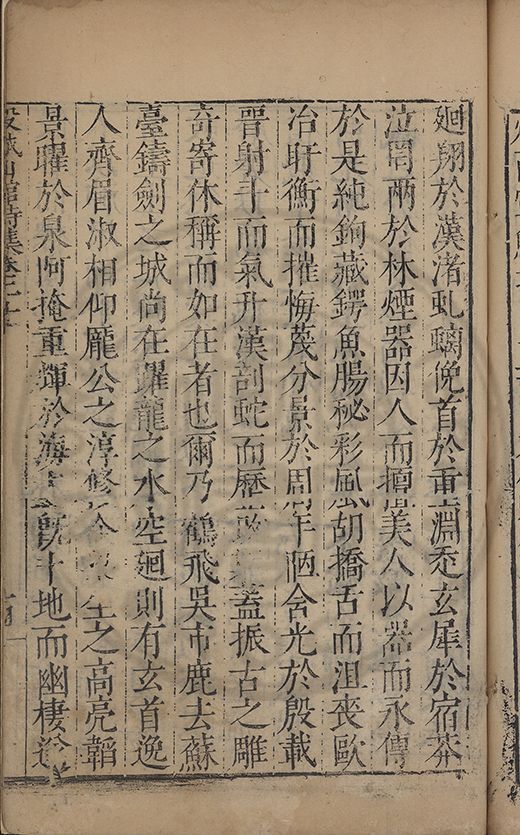 廻翔於漢渚虬螭俛首於重淵忞玄犀於宿莽
泣罔兩於林煙器因人而擅美人以器而永傳
於是純鉤藏鍔魚腸秘彩風胡撟舌而沮喪歐
冶盱衡而摧悔蔑分景於周年陋含光於殷載
晉射斗而氣升漢剖蛇而歷 蓋振古之雕
奇寄休稱而如在者也爾乃鶴飛吳市鹿去蘇
臺鑄劍之城尚在躍龍之水空廻則有玄首逸
人齊眉淑相仰龐公之淳修 生之高亮韜
景曜於泉阿掩重輝於海 旣 地而幽棲
城山館詩集卷之